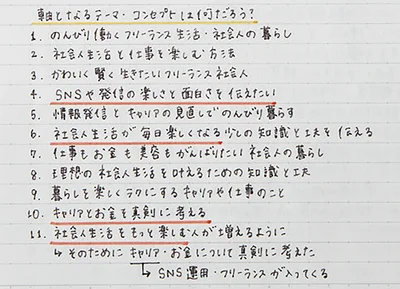 軸となるテーマ・コンセプトは何だろう?
1. のんびり働くフリーランス生活・社会人の暮らし
2. 社会人生活と仕事を楽しむ方法
3. かわいく賢く生きたいフリーランス社会人
4. SNSや発信の楽しさと面白さを伝えたい
5. 情報発信とキャリアの見直しでのんびり暮らす
6. 社会人生活が毎日楽しくなる少しの知識と工夫を伝える
7. 仕事もお金も美容もがんばりたい社会人の暮らし
8. 理想の社会人生活を叶えるための知識と工夫
9. 暮らしを楽しくラクにするキャリアや仕事のこと
10. キャリアとお金を真剣に考える
11. 社会人生活をもっと楽しむ人が増えるように
↳ そのためにキャリア・お金について真剣に考えた
↳ SNS運用・フリーランスが入ってくる